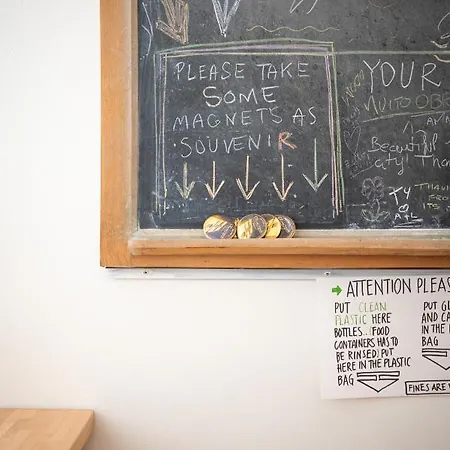 PLEASE TAKE
SOME
MAGNETS AS
SOUVENIR
YOUR
MUITO OBR
Beautiful
city! Than
TY
A+L
THAN
FROM
ITS
ATTENTION PLEAS
PUT CLEAN
PLASTIC HERE
BOTTLES...(FOOD
CONTAINERS HAS TO
BE RINSED) PUT
HERE IN THE PLASTIC
BAG
PUT GL
AND CA
IN THE
BAG
FINES ARE